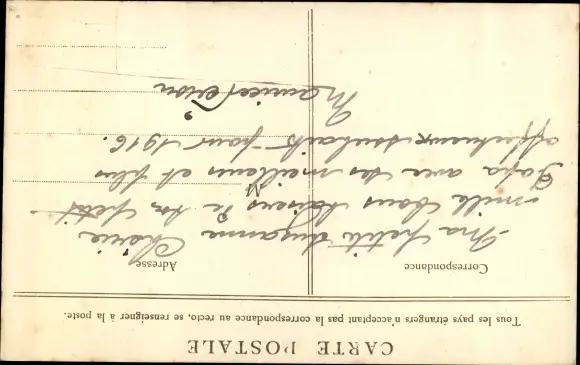 CARTE POSTALE
Tous les pays étrangers n'acceptant pas la correspondance au recto, se renseigner à la poste.
Correspondance
Adresse
Ma petite Suzanne Chérie
mille bons baisers de ton petit
Papa avec ses meilleurs et plus
affectueux souhaits pour 1916.
Maurice
M